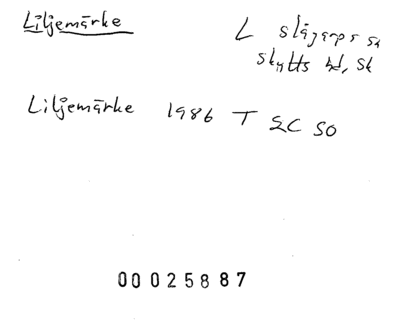 Liljemärke
L slågarps sn
skytts hd, Sk
Liljemärke 1986 T 2C SO
00025887